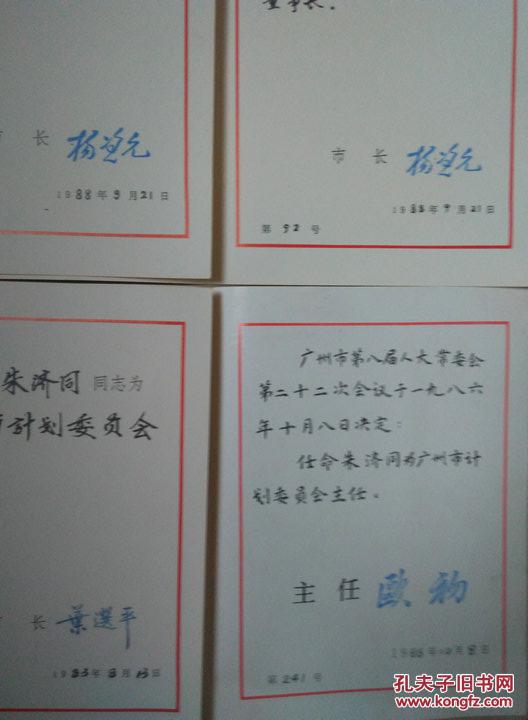 市 长 杨资元
1988年9月21日
董事长.
市 长 杨资元
1988年9月21日
第 92 号
朱济同 同志为
计划委员会
市 长 葉選平
1983年8月13日
广州市第八届人大常委会
第二十二次会议于一九八六
年十月八日决定:
任命朱济同为广州市计
划委员会主任。
主 任 欧初
1986年10月8日
第 241 号
孔夫子旧书网
KONGFZ.COM